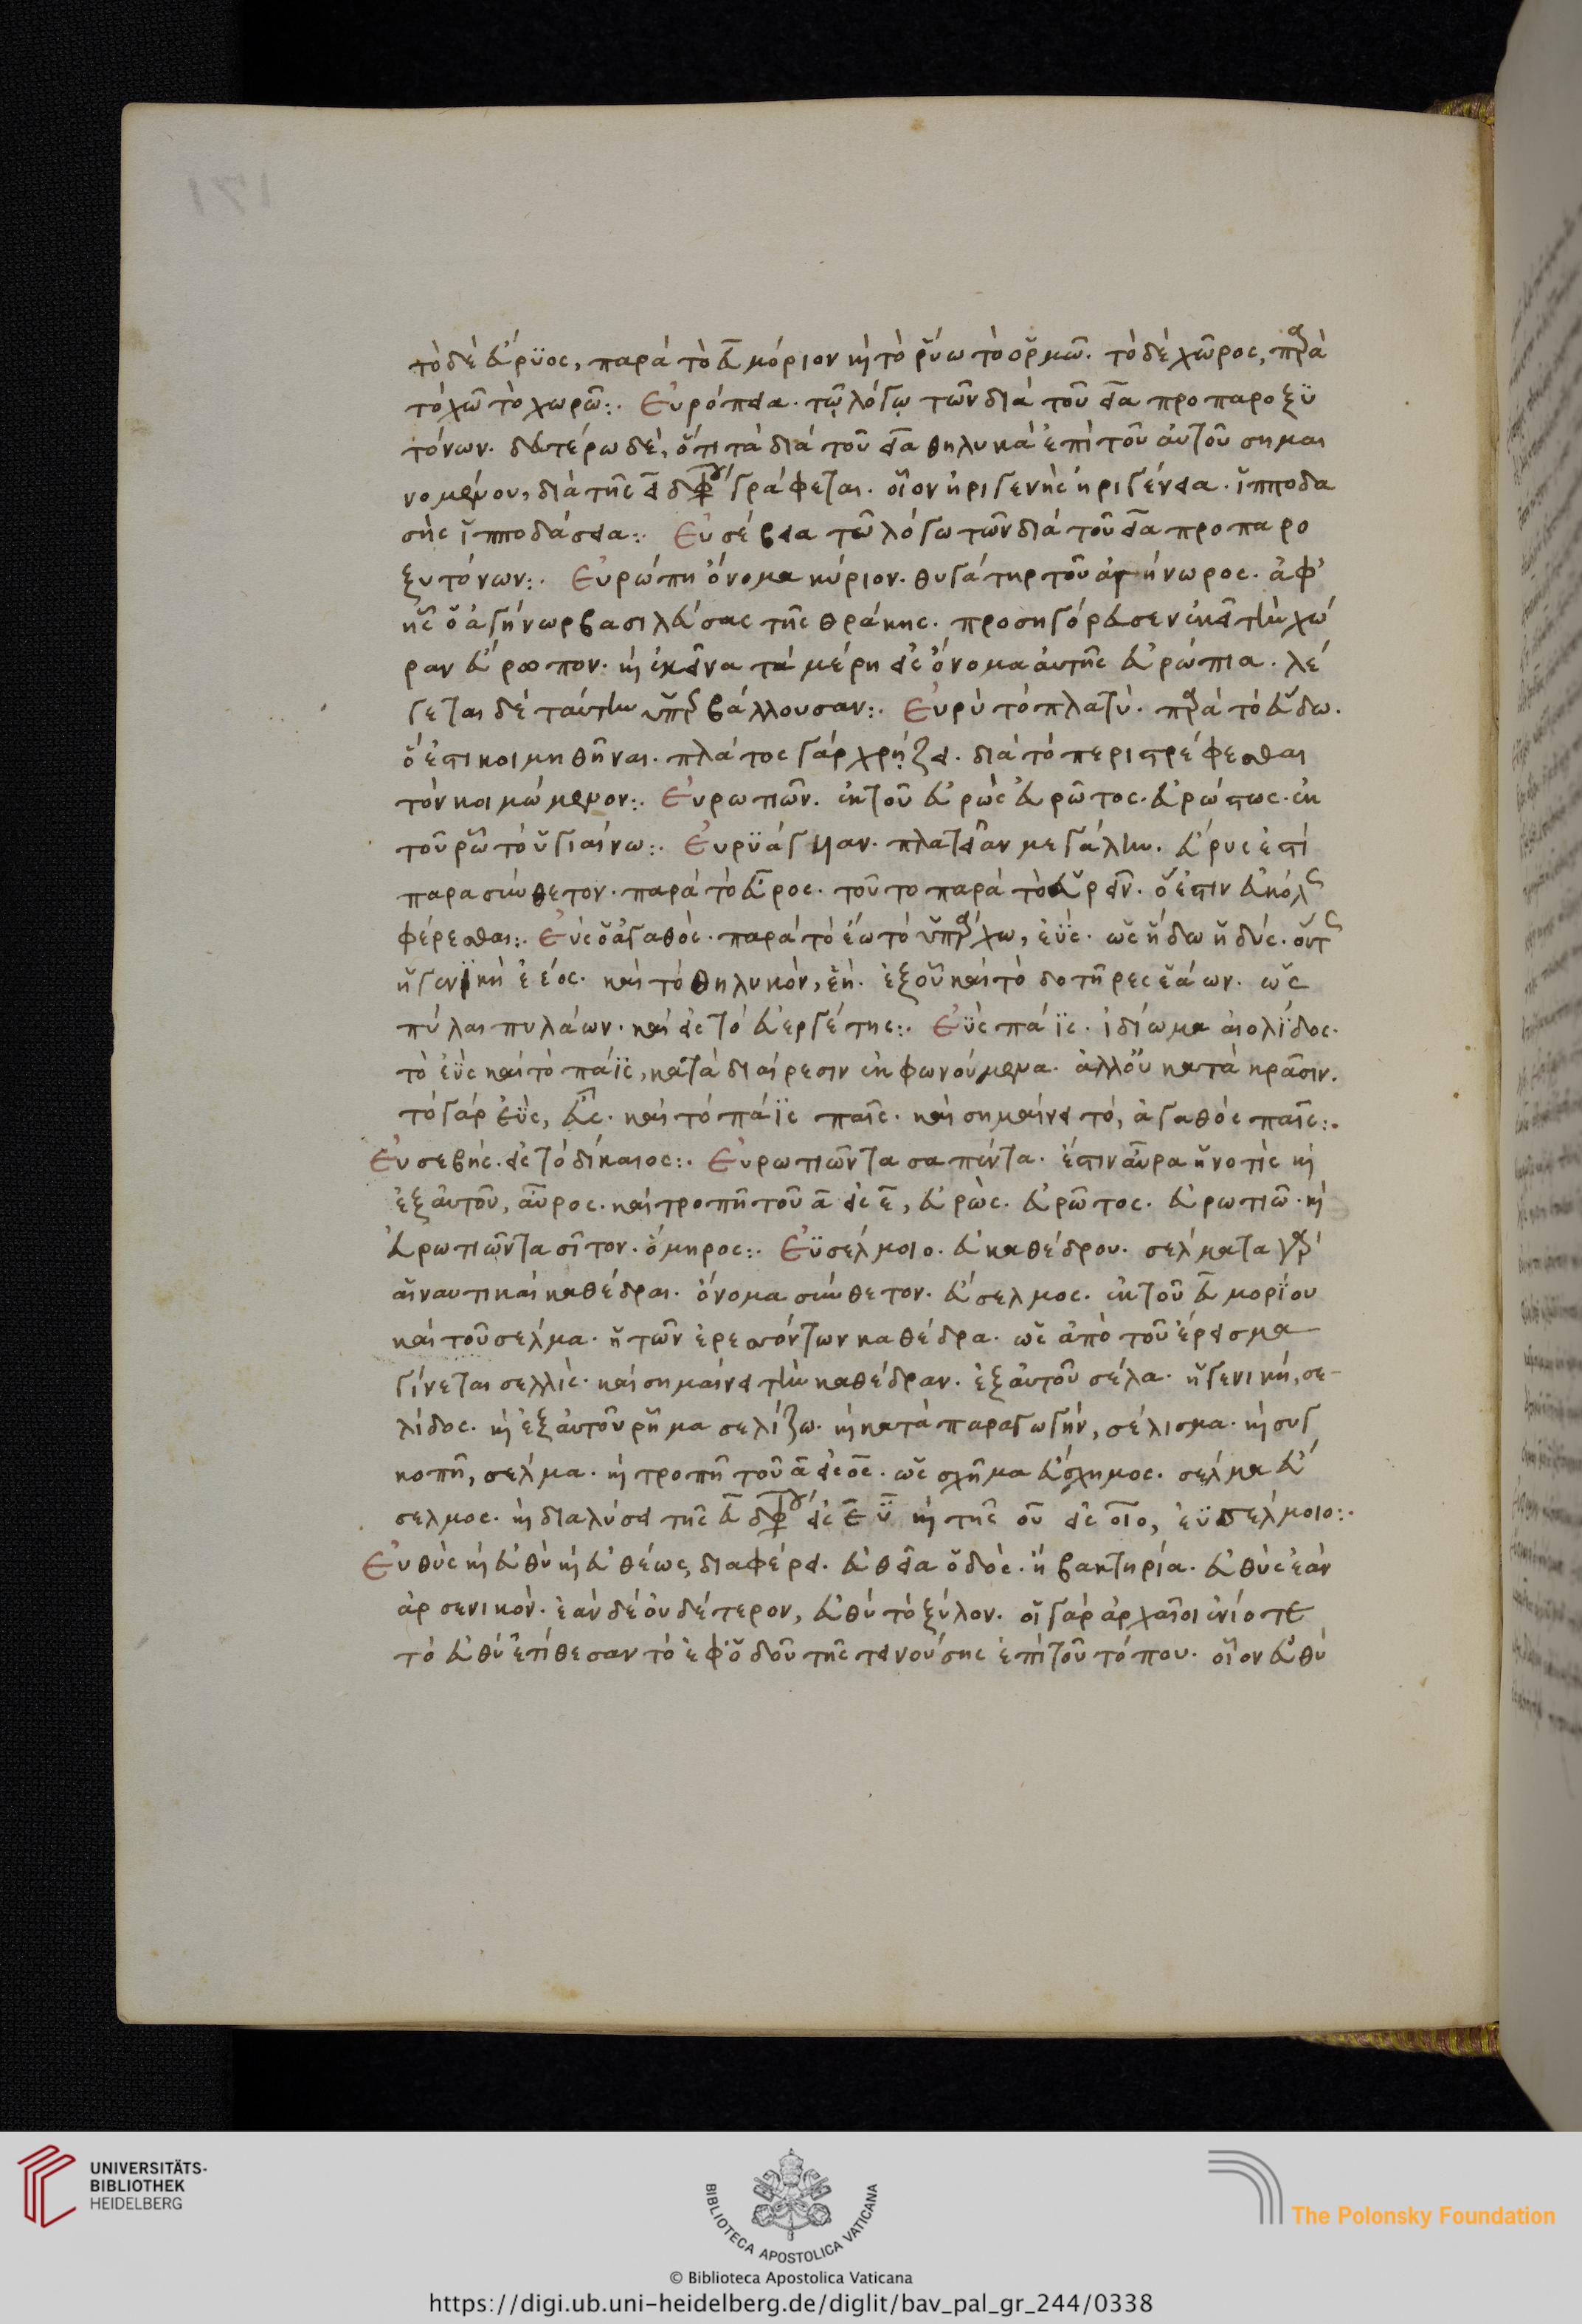 τὸ δὲ εὔρϋος, παρὰ τὸ ευ μόριον κὶ τὸ ῥύω τὸ ὁρμῶ. τὸ δὲ χῶρος, παρὰ
τὸ χῶ τὸ χωρῶ:. Εὐρόπεια. τῷ λόγῳ τῶν διὰ τοῦ εια προπαροξϋ
τόνων. δευτέρω δὲ, ὅτι τὰ διὰ τοῦ εια θηλυκὰ ἐπὶ τοῦ αὐτοῦ σημαι
νομένου, διὰ τῆς ει διφθόγγου γράφεται. οἷον ἠριγενὴς ἠριγένεια. ἱπποδα
σὴς ἱπποδάσεια:. Εὐσέβεια τῶ λόγω τῶν διὰ τοῦ εια προπαρο
ξυτόνων:. Εὐρώπη ὄνομα κύριον. θυγάτηρ τοῦ ἀγήνωρος. ἀφ'
ἧς ὁ ἀγήνωρ βασιλεύσας τῆς θράκης. προσηγόρευσεν ἐκεί τὴν χώ
ραν εὔρωπον. κὶ ἐκεῖνα τὰ μέρη εἰς ὄνομα αὐτῆς εὐρώπια. λέ
γεται δὲ ταύτην ὑπερβάλλουσαν:. Εὐρὺ τὸ πλατύ. παρὰ τὸ εὕδω.
ὅ ἐστι κοιμηθῆναι. πλάτος γὰρ χρήζει. διὰ τὸ περιστρέφεσθαι
τὸν κοιμώμενον:. Εὐρωτιῶν. ἐκ τοῦ εὐρὼς εὐρῶτος. εὐρώστως. ἐκ
τοῦ ῥῶ τὸ ὑγιαίνω:. Εὐρϋάγυιαν. πλατεῖαν μεγάλην. εὔρυς ἐστὶ
παρασύνθετον. παρὰ τὸ εὖρος. τοῦτο παρὰ τὸ εὖ ῥεῖν. ὅ ἐστιν εὐκόλως
φέρεσθαι:. Εὐς ὁ ἀγαθός. παρὰ τὸ ἔω τὸ ὑπάρχω, ἐΰς. ὡς ἥδω ἡδύς. οὕτως
ἡ γενϊκὴ ἐέος. καὶ τὸ θηλυκόν, ἐή. ἐξ οὗ καὶ τὸ δοτῆρες ἑάων. ὡς
πύλαι πυλάων. καὶ εἰς τὸ εὐεργέτης:. Εΰς πάϊς. ἰδίωμα αἰολίδος.
τὸ ἐῢς καὶ τὸ πάϊς, κατὰ διαίρεσιν ἐκφωνούμενα. ἀλλ' οὐ κατὰ κρᾶσιν.
τὸ γὰρ ἐῢς, εὖς. καὶ τὸ πάϊς παῖς. καὶ σημαίνει τὸ, ἀγαθὸς παῖς:.
Εὐσεβής. εἰς τὸ δίκαιος:. Εὐρωτιῶντα σαπέντα. ἔστιν αὔρα ἡ νοτὶς κὶ
ἐξ αὐτοῦ, αὖρος. καὶ τροπῇ τοῦ α εἰς ε, εὐρώς. εὐρῶτος. εὐρωτιῶ. κὶ
εὐρωτιῶντα σῖτον. ὅμηρος:. Εϋσέλμοιο. εὐκαθέδρου. σέλματα γὰρ
αἱ ναυτικαὶ καθέδραι. ὄνομα σύνθετον. εὔσελμος. ἐκ τοῦ ευ μορίου
καὶ τοῦ σέλμα. ἡ τῶν ἐρεσσόντων καθέδρα. ὡς ἀπὸ τοῦ ἔρεισμα
γίνεται σελλίς. καὶ σημαίνει τὴν καθέδραν. ἐξ αὐτοῦ σέλα. ἡ γενική, σε-
λίδος. κὶ ἐξ αὐτοῦ ῥῆμα σελίζω. κὶ κατὰ παραγωγήν, σέλισμα. κὶ συγ
κοπῇ, σέλμα. κὶ τροπῇ τοῦ α εἰς ος. ὡς σχῆμα εὔσχημος. σέλμα εὔ
σελμος. κὶ διαλύσει τῆς ευ διφθόγγου εἰς ε ϋ κὶ τῆς ου εἰς οιο, ἐϋσέλμοιο:.
Εὐθὺς κὶ εὐθὺ κὶ εὐθέως, διαφέρει. εὐθεῖα ὁδός. ἢ βακτηρία. εὐθὺς ἐὰν
ἀρσενικόν. ἐὰν δὲ οὐδέτερον, εὐθὺ τὸ ξύλον. οἱ γὰρ ἀρχαῖοι ἐνίοτε
τὸ εὐθὺ ἐτίθεσαν τὸ ἐφ' ὁδοῦ τῆς τεινούσης ἐπὶ τοῦ τόπου. οἷον εὐθὺ
UNIVERSITÄTS-
BIBLIOTHEK
HEIDELBERG
BIBLIOTECA APOSTOLICA VATICANA
The Polonsky Foundation
© Biblioteca Apostolica Vaticana
https://digi.ub.uni-heidelberg.de/diglit/bav_pal_gr_244/0338